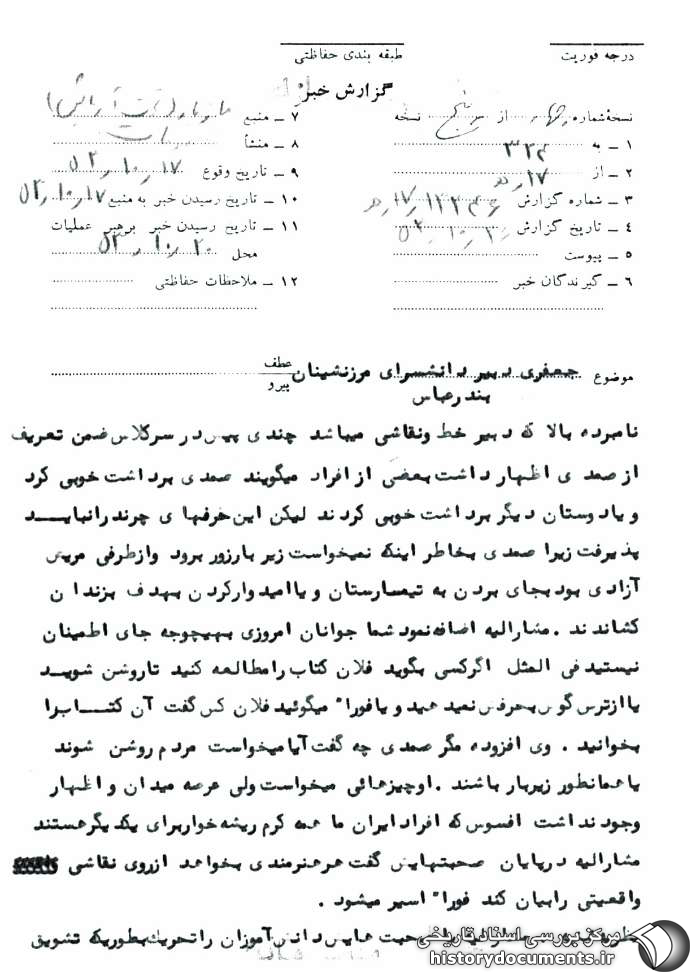 درجه فوریت
طبقه بندی حفاظتی
گزارش خبر
نسخهٔ شماره چهار از پنج نسخه
۱ ـ به ۳۲۴
۲ ـ از ۱۷ ه
۳ ـ شماره گزارش ۱۲۲۴۶ / ۱۷ ه
۴ ـ تاریخ گزارش
۵ ـ پیوست
۶ ـ گیرندگان خبر
۷ ـ منبع
۸ ـ منشأ
۹ ـ تاریخ وقوع ۱۷ ر ۱۰ ر ۵۲
۱۰ ـ تاریخ رسیدن خبر به منبع ۱۷ ر ۱۰ ر ۵۲
۱۱ ـ تاریخ رسیدن خبر برهبر عملیات
محل ۲۰ ر ۱۰ ر ۵۲
۱۲ ـ ملاحظات حفاظتی
موضوع جعفری دبیر دانشسرای مرزنشینان عطف
بندرعباس پیرو
نامبرده بالا که دبیر خط ونقاشی میباشد چندی پیش در سرکلاس ضمن تعریف
از صمدی اظهار داشت بعضی از افراد میگویند صمدی برداشت خوبی کرد
و یا دوستان دیگر برداشت خوبی کردند لیکن این حرفهای چرند را نبایـــد
پذیرفت زیرا صمدی بخاطر اینکه نمیخواست زیر بار زور برود واز طرفی مریض
آزادی بود بجای بردن به تیمسارستان و یا امیدوار کردن بهدف بزندان
کشاندند . مشارالیه اضافه نمود شما جوانان امروزی بهیچوجه جای اطمینان
نیستید فی المثل اگرکسی بگوید فلان کتاب را مطالعه کنید تا روشن شویـد
یا از ترس گوش بحرفش نمیدهید و یا فورا" میگوئید فلان کس گفت آن کتـــابرا
بخوانید . وی افزوده مگر صمدی چه گفت آیا میخواست مردم روشن شوند
یا همانطور زیربار باشند . اوچیزهائی میخواست ولی عرصه میدان و اظهار
وجود نداشت افسوس که افراد ایران ما همه کرم ریشه خوار برای یکدیگر هستند
مشارالیه در پایان صحبتهایش گفت هر هنرمندی بخواهد از روی نقاشی
واقعیتی را بیان کند فورا" اسیر میشود .
هایش دانش آموزان را تحریک بطوریکه تشویق
مرکز بررسی اسناد تاریخی
historydocuments.ir